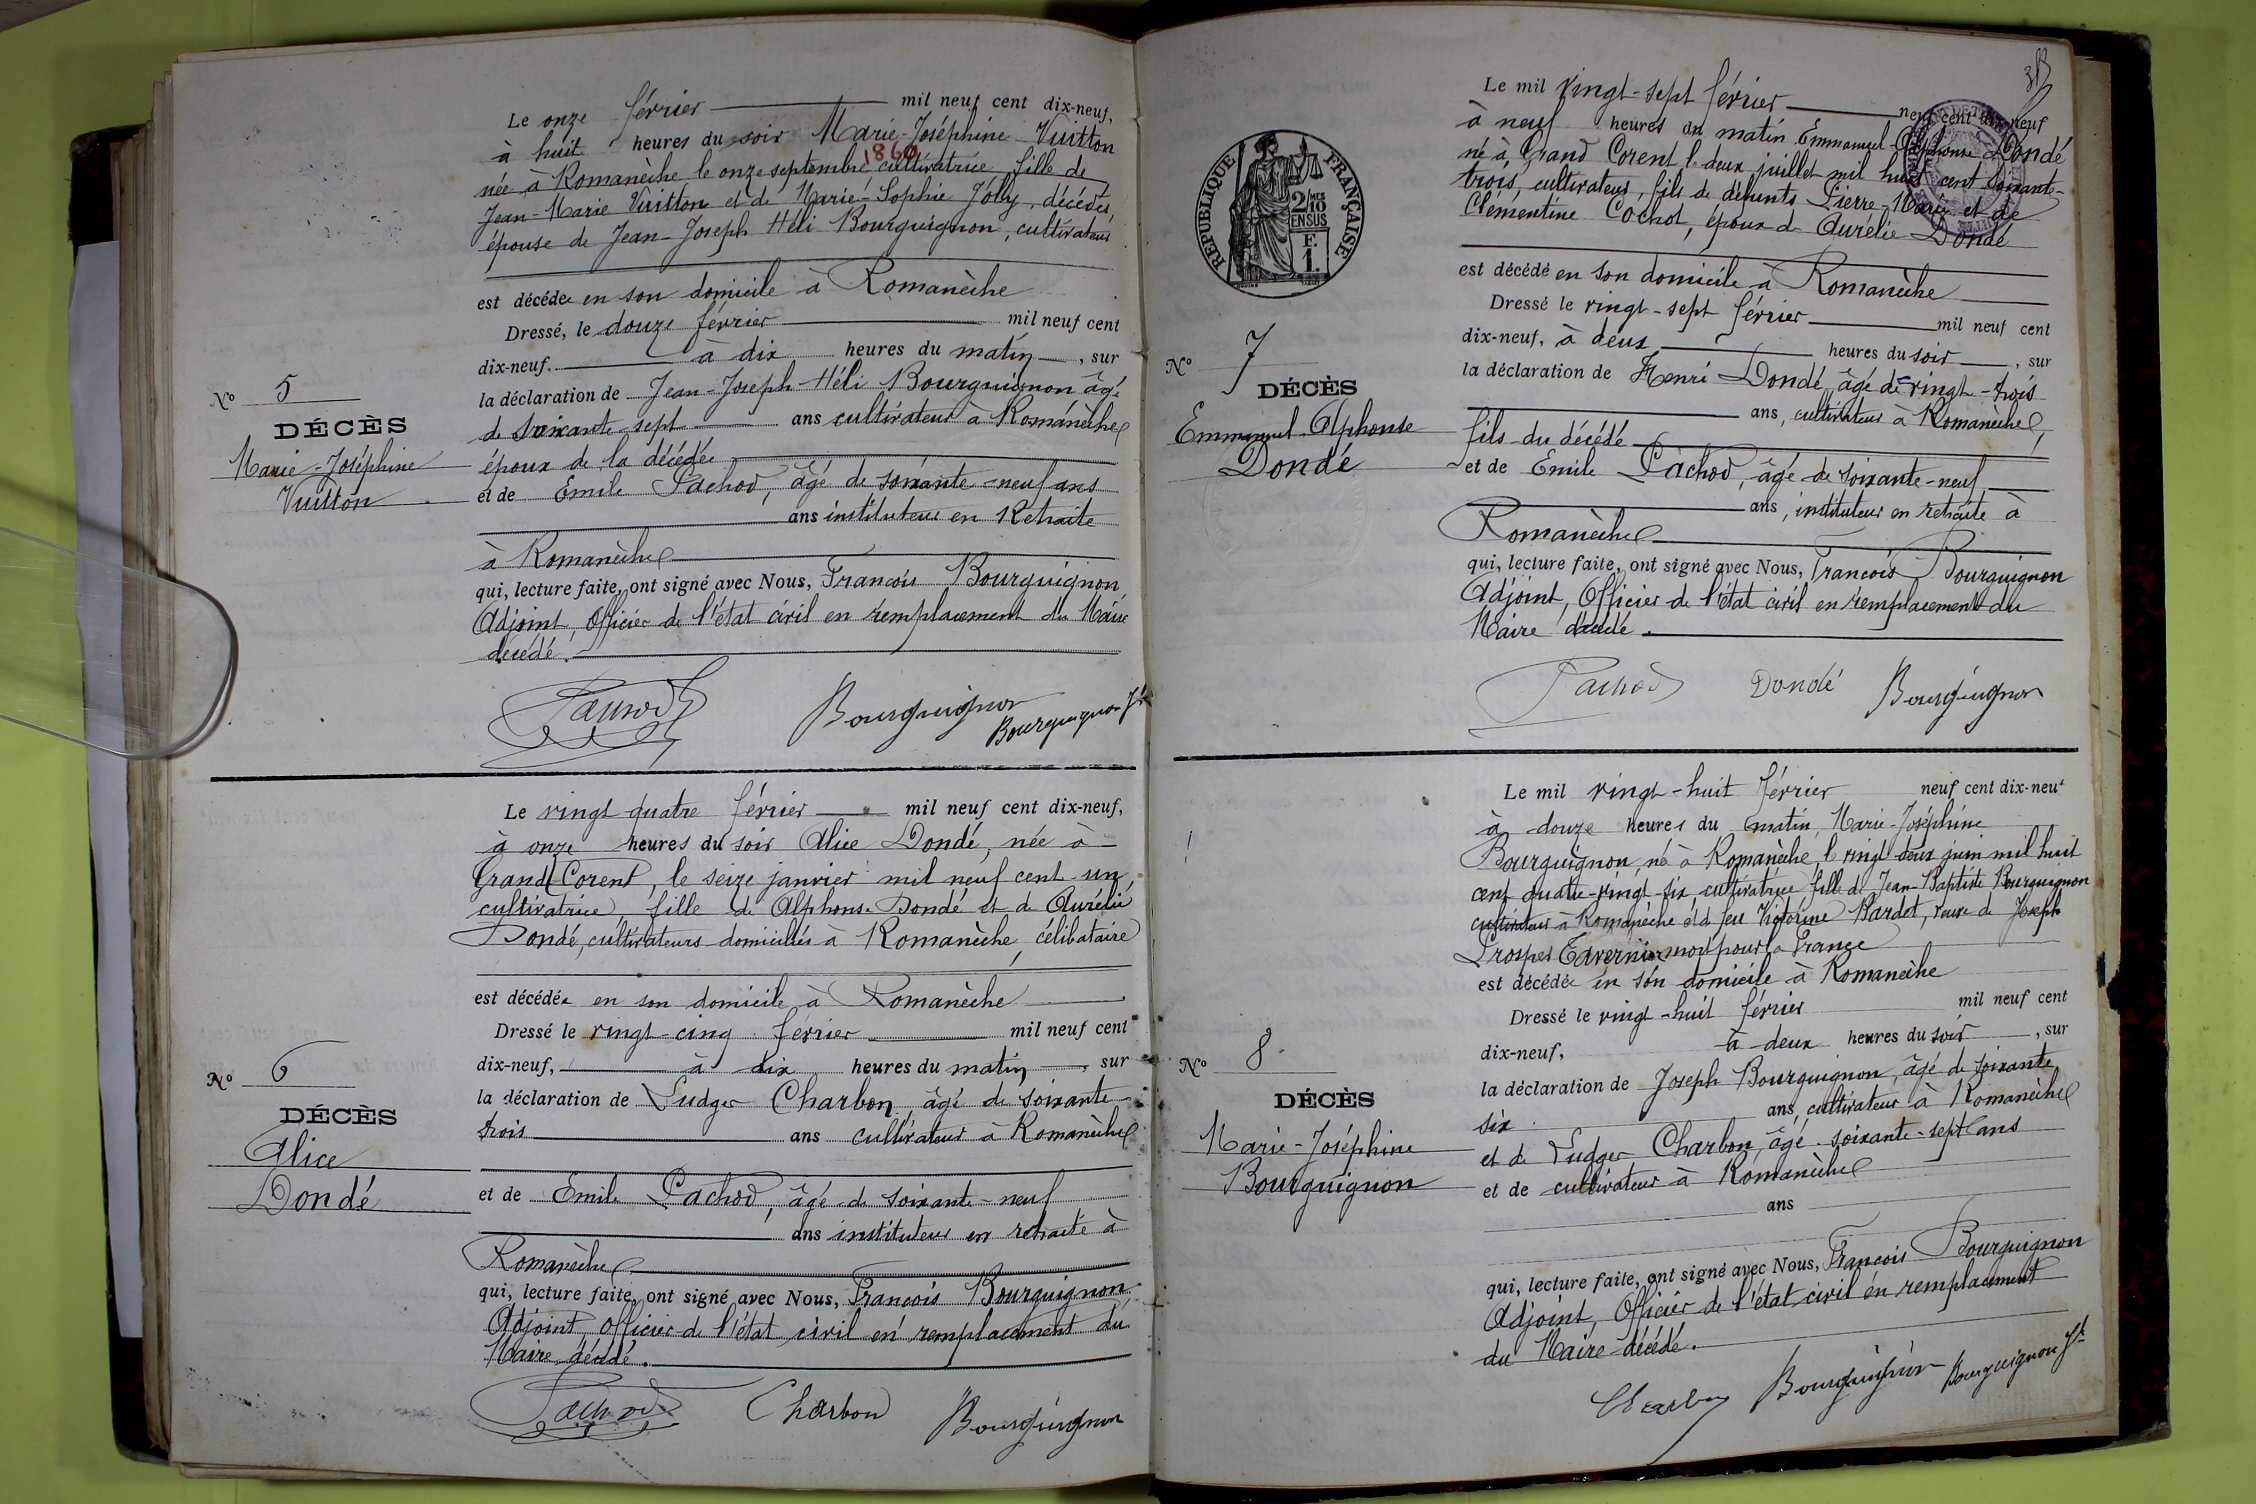 Le onze février mil neuf cent dix-neuf,
à huit heures du soir Marie-Joséphine Vuitton
1860
née à Romanèche le onze septembre, cultivatrice, fille de
Jean-Marie Vuitton et de Marie-Sophie Jolly, décédés,
épouse de Jean-Joseph Héli Bourguignon, cultivateur
est décédée en son domicile à Romanèche
Dressé, le douze février mil neuf cent
dix-neuf. à dix heures du matin, sur
la déclaration de Jean-Joseph Héli Bourguignon âgé
de soixante sept ans cultivateur à Romanèche
époux de la décédée
et de Emile Pachod, âgé de soixante-neuf ans
ans instituteur en Retraite
à Romanèche
qui, lecture faite, ont signé avec Nous, François Bourguignon,
Adjoint, Officier de l'état civil en remplacement du Maire
décédé.
Pachod Bourguignon
Bourguignon Js
No 5
DÉCÈS
Marie-Joséphine
Vuitton
Le vingt quatre février mil neuf cent dix-neuf,
à onze heures du soir Alice Dondé, née à
Grand Corent, le seize janvier mil neuf cent un,
cultivatrice, fille de Alphonse Dondé et de Aurélie
Dondé, cultivateurs domiciliés à Romanèche, célibataire
est décédée en son domicile à Romanèche
Dressé le vingt-cinq février mil neuf cent
dix-neuf, à dix heures du matin, sur
la déclaration de Ludger Charbon, âgé de soixante
trois ans cultivateur à Romanèche
et de Emile Pachod, âgé de soixante-neuf
ans instituteur en retraite à
Romanèche
qui, lecture faite, ont signé avec Nous, François Bourguignon,
Adjoint, Officier de l'état civil en remplacement du
Maire décédé.
Pachod Charbon Bourguignon
No 6
DÉCÈS
Alice
Dondé
RÉPUBLIQUE FRANÇAISE
2/10MES
EN SUS
F.
1.
Le mil vingt-sept février neuf cent dix-neuf
à neuf heures du matin Emmanuel-Alphonse Dondé
né à Grand Corent le deux juillet mil huit cent soixante-
trois, cultivateur, fils de défunts Pierre-Marie et de
Clémentine Cochot, époux de Aurélie Dondé
est décédé en son domicile à Romanèche
Dressé le vingt-sept février mil neuf cent
dix-neuf, à deux heures du soir, sur
la déclaration de Henri Dondé, âgé de vingt-trois
ans, cultivateur à Romanèche,
fils du décédé
et de Emile Pachod, âgé de soixante-neuf
ans, instituteur en retraite à
Romanèche
qui, lecture faite, ont signé avec Nous, François Bourguignon
Adjoint, Officier de l'état civil en remplacement du
Maire décédé.
Pachod Dondé Bourguignon
No 7
DÉCÈS
Emmanuel-Alphonse
Dondé
Le mil vingt-huit février neuf cent dix-neuf
à douze heures du matin, Marie-Joséphine
Bourguignon, né à Romanèche, le vingt deux juin mil huit
cent quatre-vingt-six, cultivatrice fille de Jean-Baptiste Bourguignon
cultivateur à Romanèche et de feu Victorine Mardet, veuve de Joseph
Prosper Tavernier mort pour la France
est décédée en son domicile à Romanèche
Dressé le vingt-huit février mil neuf cent
dix-neuf, à deux heures du soir, sur
la déclaration de Joseph Bourguignon, âgé de soixante
six ans, cultivateur à Romanèche
et de Ludger Charbon, âgé soixante-sept ans
et de cultivateur à Romanèche
ans
qui, lecture faite, ont signé avec Nous, François Bourguignon
Adjoint, Officier de l'état civil en remplacement
du Maire décédé.
Charbon Bourguignon Bourguignon Js
No 8
DÉCÈS
Marie-Joséphine
Bourguignon